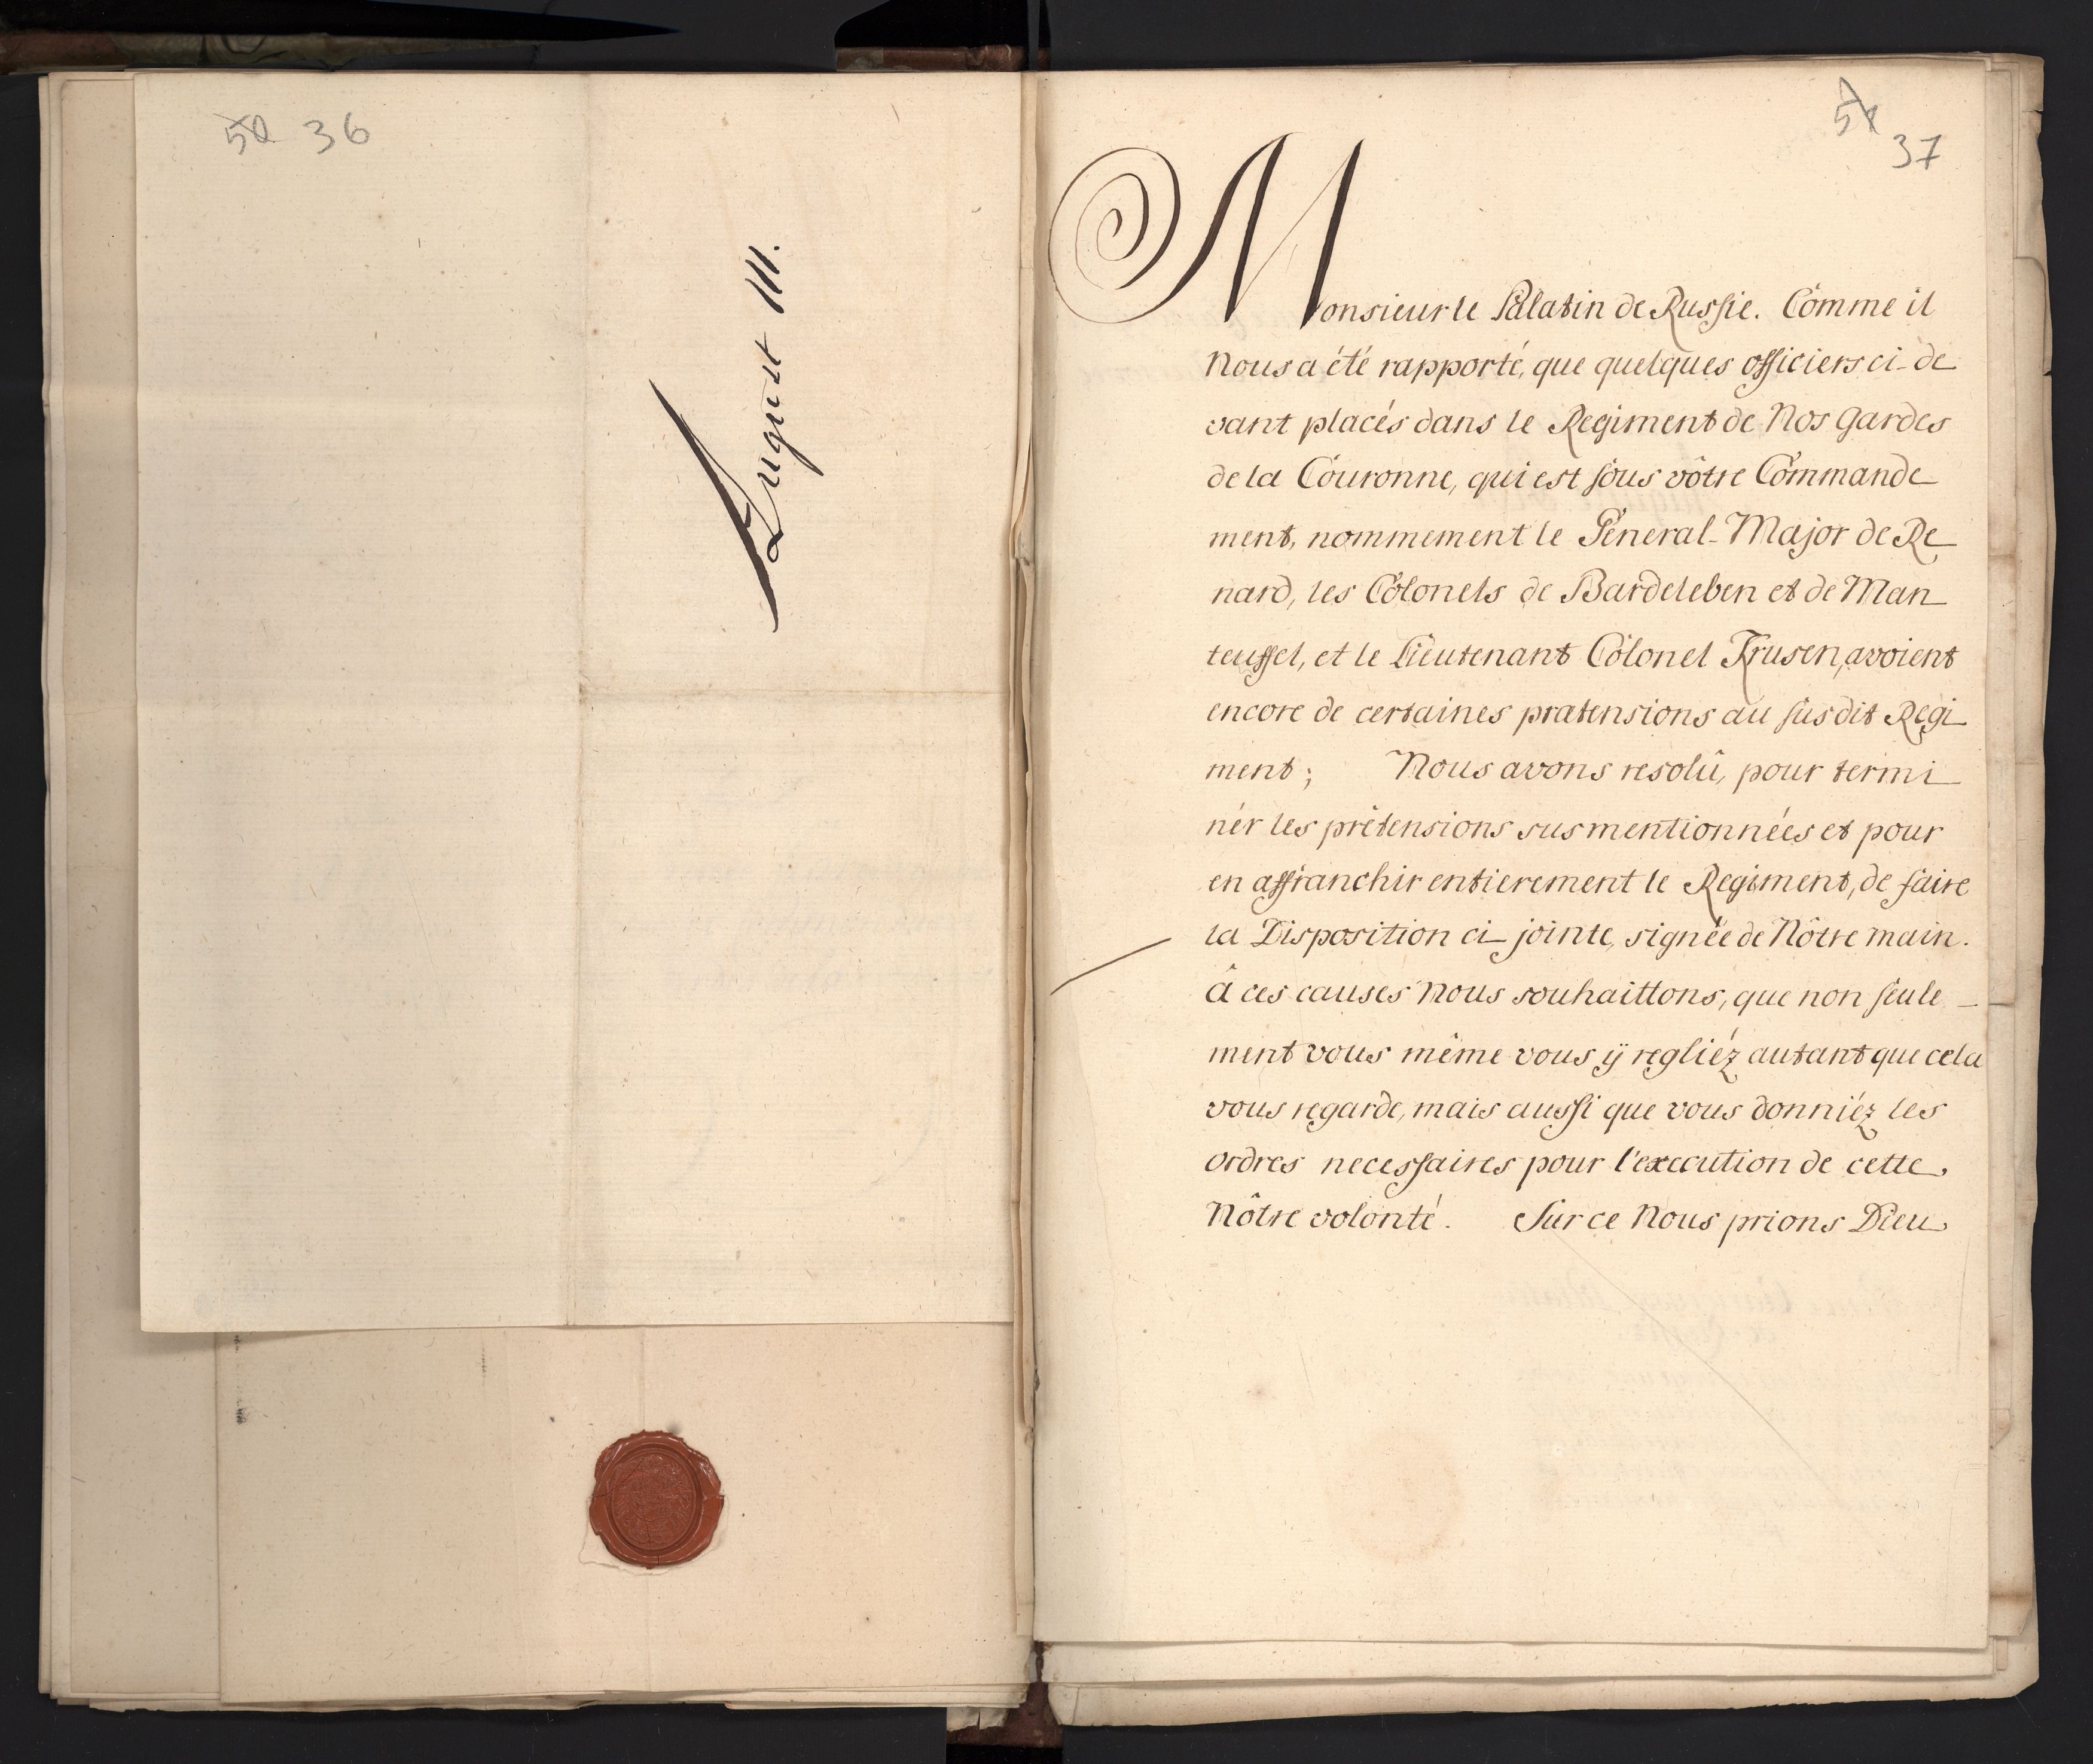 50 36
August III.
51
37
Monsieur le Palatin de Russie. Comme il
Nous a été rapporté, que quelques officiers ci-de
vant placés dans le Regiment de Nos Gardes
de la Couronne, qui est sous vôtre Commande
ment, nommement le General-Major de Re
nard, les Colonels de Bardeleben et de Man
teuffel, et le Lieutenant Colonel Krusen, avoient
encore de certaines prætensions au susdit Regi
ment; Nous avons resolû, pour termi
nér les prétensions susmentionnées et pour
en affranchir entierement le Regiment, de faire
la Disposition ci-jointe, signée de Nôtre main.
â ces causes Nous souhaittons, que non seule-
ment vous même vous ÿ regliéz autant que cela
vous regarde, mais aussi que vous donniéz les
ordres necessaires pour l'execution de cette
Nôtre volonté. Sur ce Nous prions Dieu